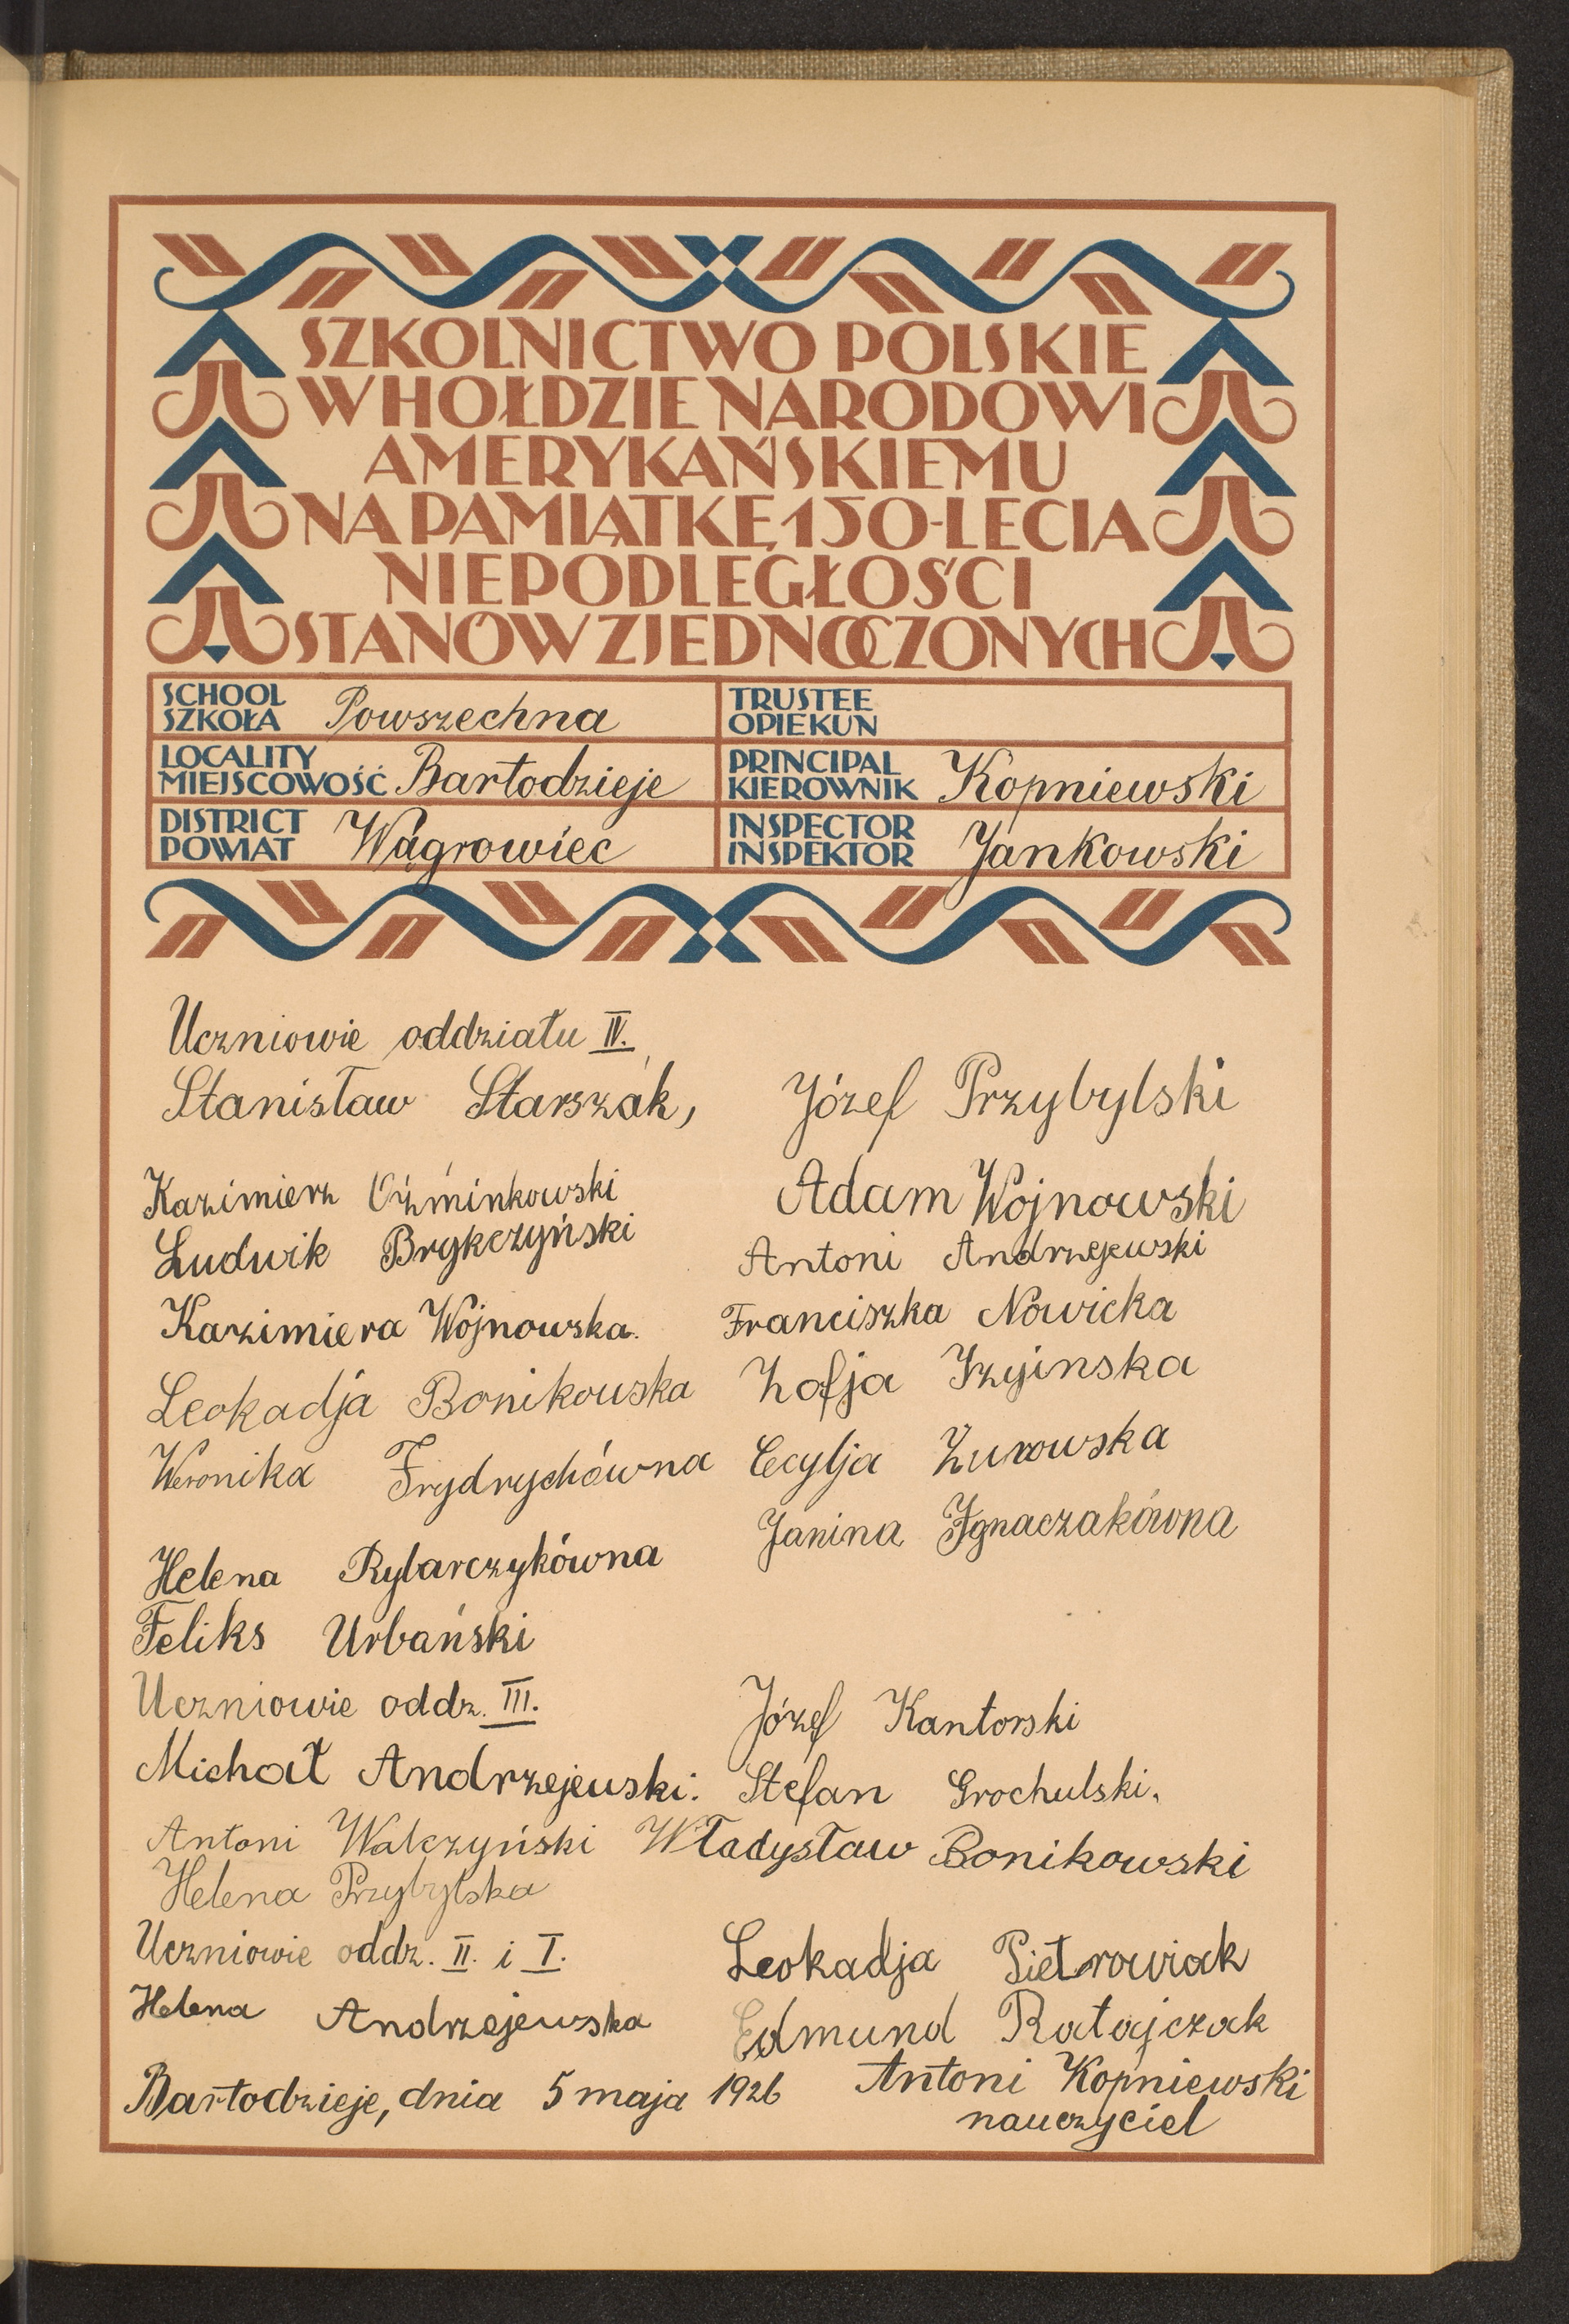 SZKOLNICTWO POLSKIE
W HOŁDZIE NARODOWI
AMERYKAŃSKIEMU
NA PAMIĄTKĘ 150-LECIA
NIEPODLEGŁOŚCI
STANÓW ZJEDNOCZONYCH
SCHOOL
SZKOŁA Powszechna
TRUSTEE
OPIEKUN
LOCALITY
MIEJSCOWOŚĆ Bartodzieje
PRINCIPAL
KIEROWNIK Kopniewski
DISTRICT
POWIAT Wągrowiec
INSPECTOR
INSPEKTOR Jankowski
Uczniowie oddziału IV.
Stanisław Starszak, Józef Przybylski
Kazimierz Oźminkowski Adam Wojnowski
Ludwik Brykczyński Antoni Andrzejewski
Kazimiera Wojnowska. Franciszka Nowicka
Leokadja Bonikowska Zofja
Weronika Frydrychówna Cecylja Żurowska
Helena Rybarczykówna Janina Ignaczakówna
Feliks Urbański
Uczniowie oddz. III. Józef Kantorski
Michał Andrzejewski. Stefan Grochulski.
Antoni Walczyński Władysław Bonikowski
Helena Przybylska
Uczniowie oddz. II. i I. Leokadja Pietrowiak
Helena Andrzejewska Edmund Ratajczak
Bartodzieje, dnia 5 maja 1926 Antoni Kopniewski
nauczyciel